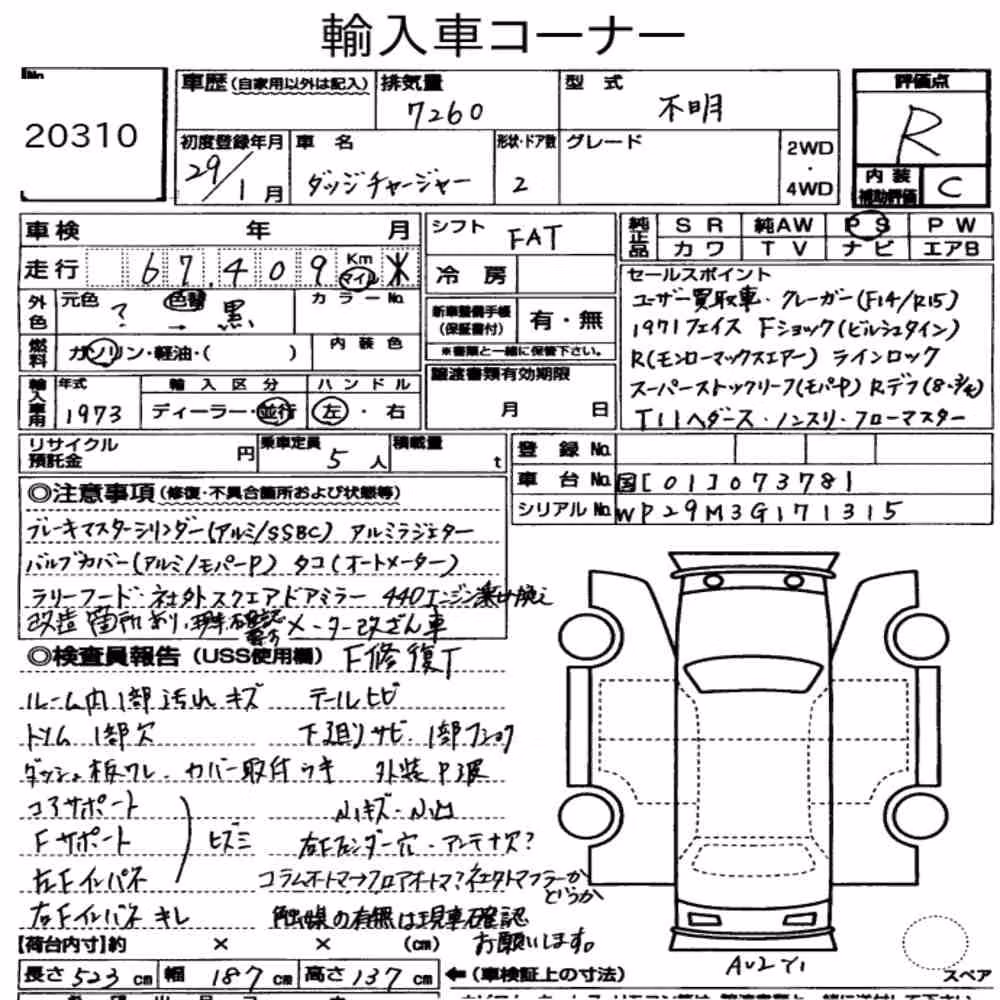 輸入車コーナー
No
20310
車歴(自家用以外は記入)
排気量
7260
型式
不明
評価点
R
初度登録年月
29/1月
車名
ダッジチャージャー
形状・ドア数
2
グレード
2WD
・
4WD
内装
補助評価
C
車検 年 月
走行 67,409 Km マイル
外色
元色 ? → 色替 黒
カラーNo.
燃料
ガソリン・軽油・( )
内装色
輸入車用
年式
1973
輸入区分
ディーラー・並行
ハンドル
左・右
シフト FAT
冷房
新車整備手帳
(保証書付)
有・無
※書類と一緒に保管下さい。
譲渡書類有効期限
月 日
純正品
SR 純AW PS PW
カワ TV ナビ エアB
セールスポイント
ユーザー買取車・クレーガー(F14/R15)
1971フェイス Fショック(ビルシュタイン)
R(モンローマックスエアー) ラインロック
スーパーストックリーフ(モパP) Rデフ(8・3/4)
TTIヘダース・ノンスリ・フローマスター
リサイクル
預託金
円
乗車定員
5人
積載量
t
登録No.
車台No. 国[01]073781
シリアルNo. WP29M3G171315
◎注意事項(修復・不具合箇所および状態等)
ブレーキマスターシリンダー(アルミ/SSBC) アルミラジェター
バルブカバー(アルミ/モパーP) タコ(オートメーター)
ラリーフード・社外スクエアドアミラー 440エンジン乗せ換え
改造箇所あり・現車確認 メーター改ざん車
◎検査員報告(USS使用欄) F修復丁
ルーム内1部汚れキズ テールヒビ
トリム1部欠 下廻りサビ・1部フショク
ダッシュ板ワレ・カバー取付ウキ 外装P
コアサポート 小キズ・小凹
Fサポート ヒズミ 右Fフェンダー穴・アンテナ欠?
左Fインパネ コラムオートマ→フロアオートマ?
どうか
右Fインパネキレ 触媒の有無は現車確認
お願いします。
【荷台内寸】約 × × (cm)
長さ523cm 幅187cm 高さ137cm
←(車検証上の寸法)
スペア